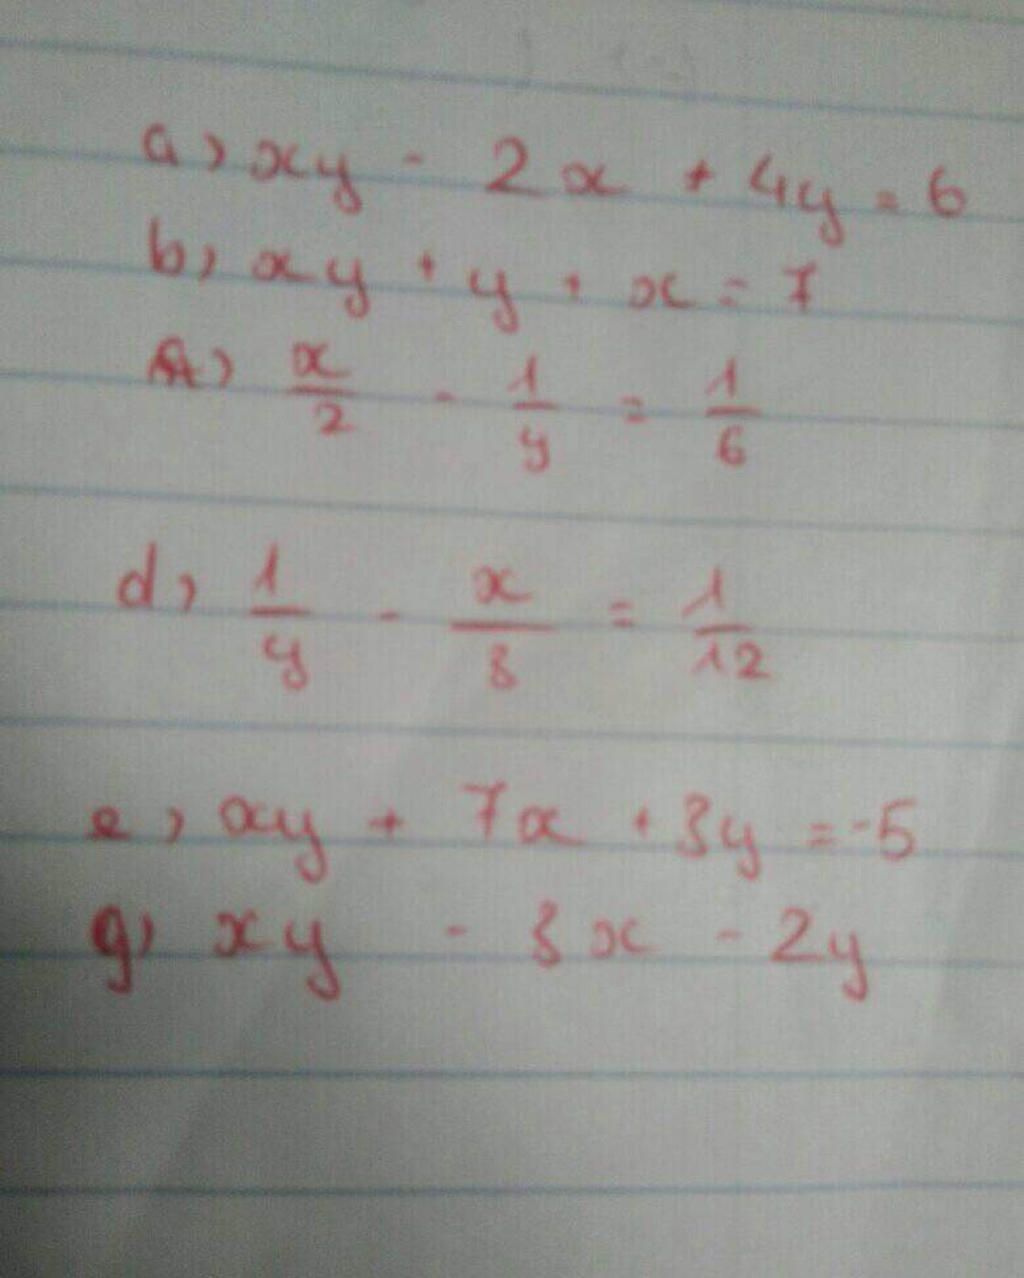 a) xy - 2x + 4y = 6
b) xy + y + x = 7
x/2 - 1/y = 1/6
d) 1/y - x/3 = 1/12
e) xy + 7x + 3y = -5
g) xy - 3x - 2y